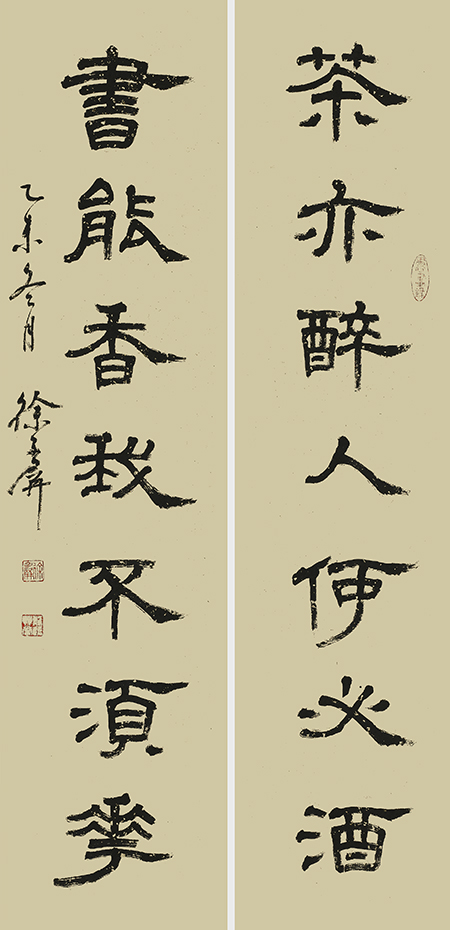 茶亦醉人何必酒
書能香我不須華
乙未冬月
徐玉屏